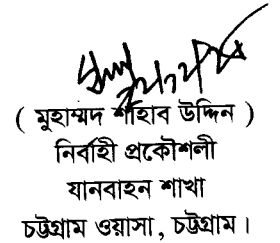 ( মুহাম্মদ শাহাব উদ্দিন )
নির্বাহী প্রকৌশলী
যানবাহন শাখা
চট্টগ্রাম ওয়াসা, চট্টগ্রাম।